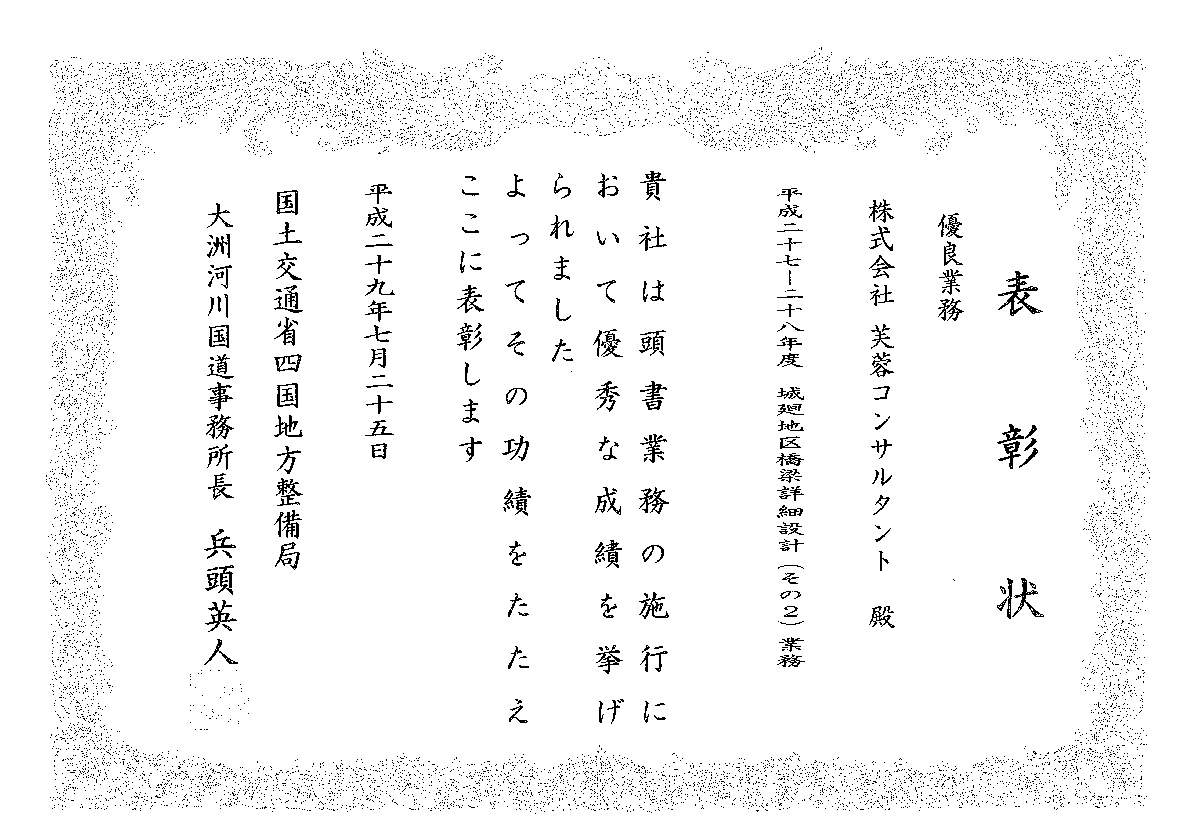 表彰状
優良業務
株式会社 芙蓉コンサルタント 殿
平成二十七ー二十八年度 城廻地区橋梁詳細設計(その2)業務
貴社は頭書業務の施行に
おいて優秀な成績を挙げ
られました
よってその功績をたたえ
ここに表彰します
平成二十九年七月二十五日
国土交通省四国地方整備局
大洲河川国道事務所長 兵頭英人